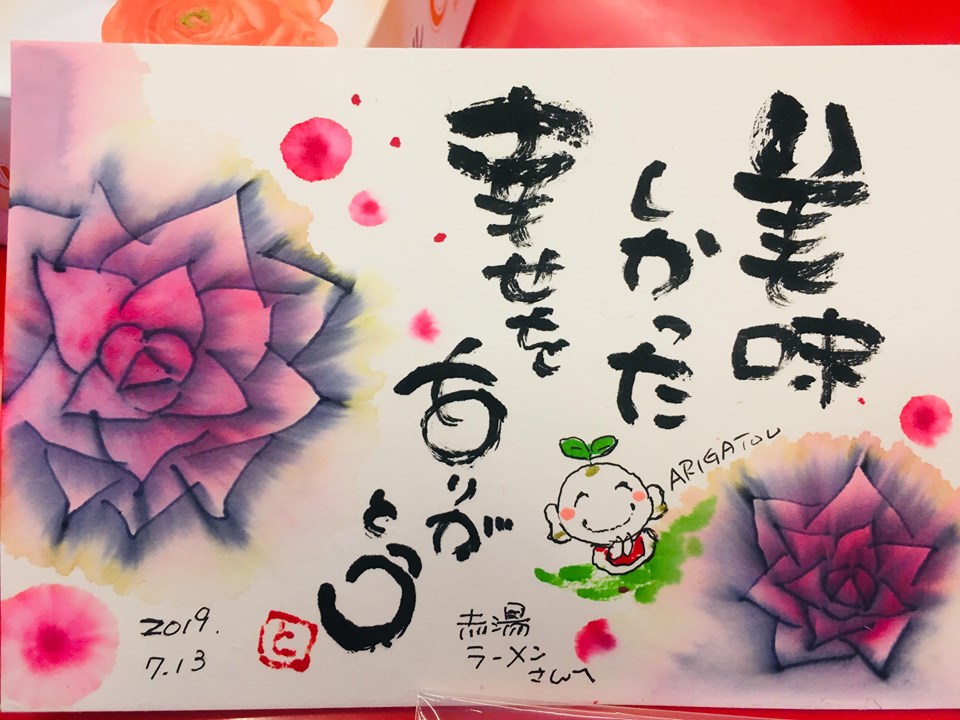 美味
しかった
幸せを
ありが
とう
ARIGATOU
赤湯
ラーメン
さんへ
2019.
7.13
と